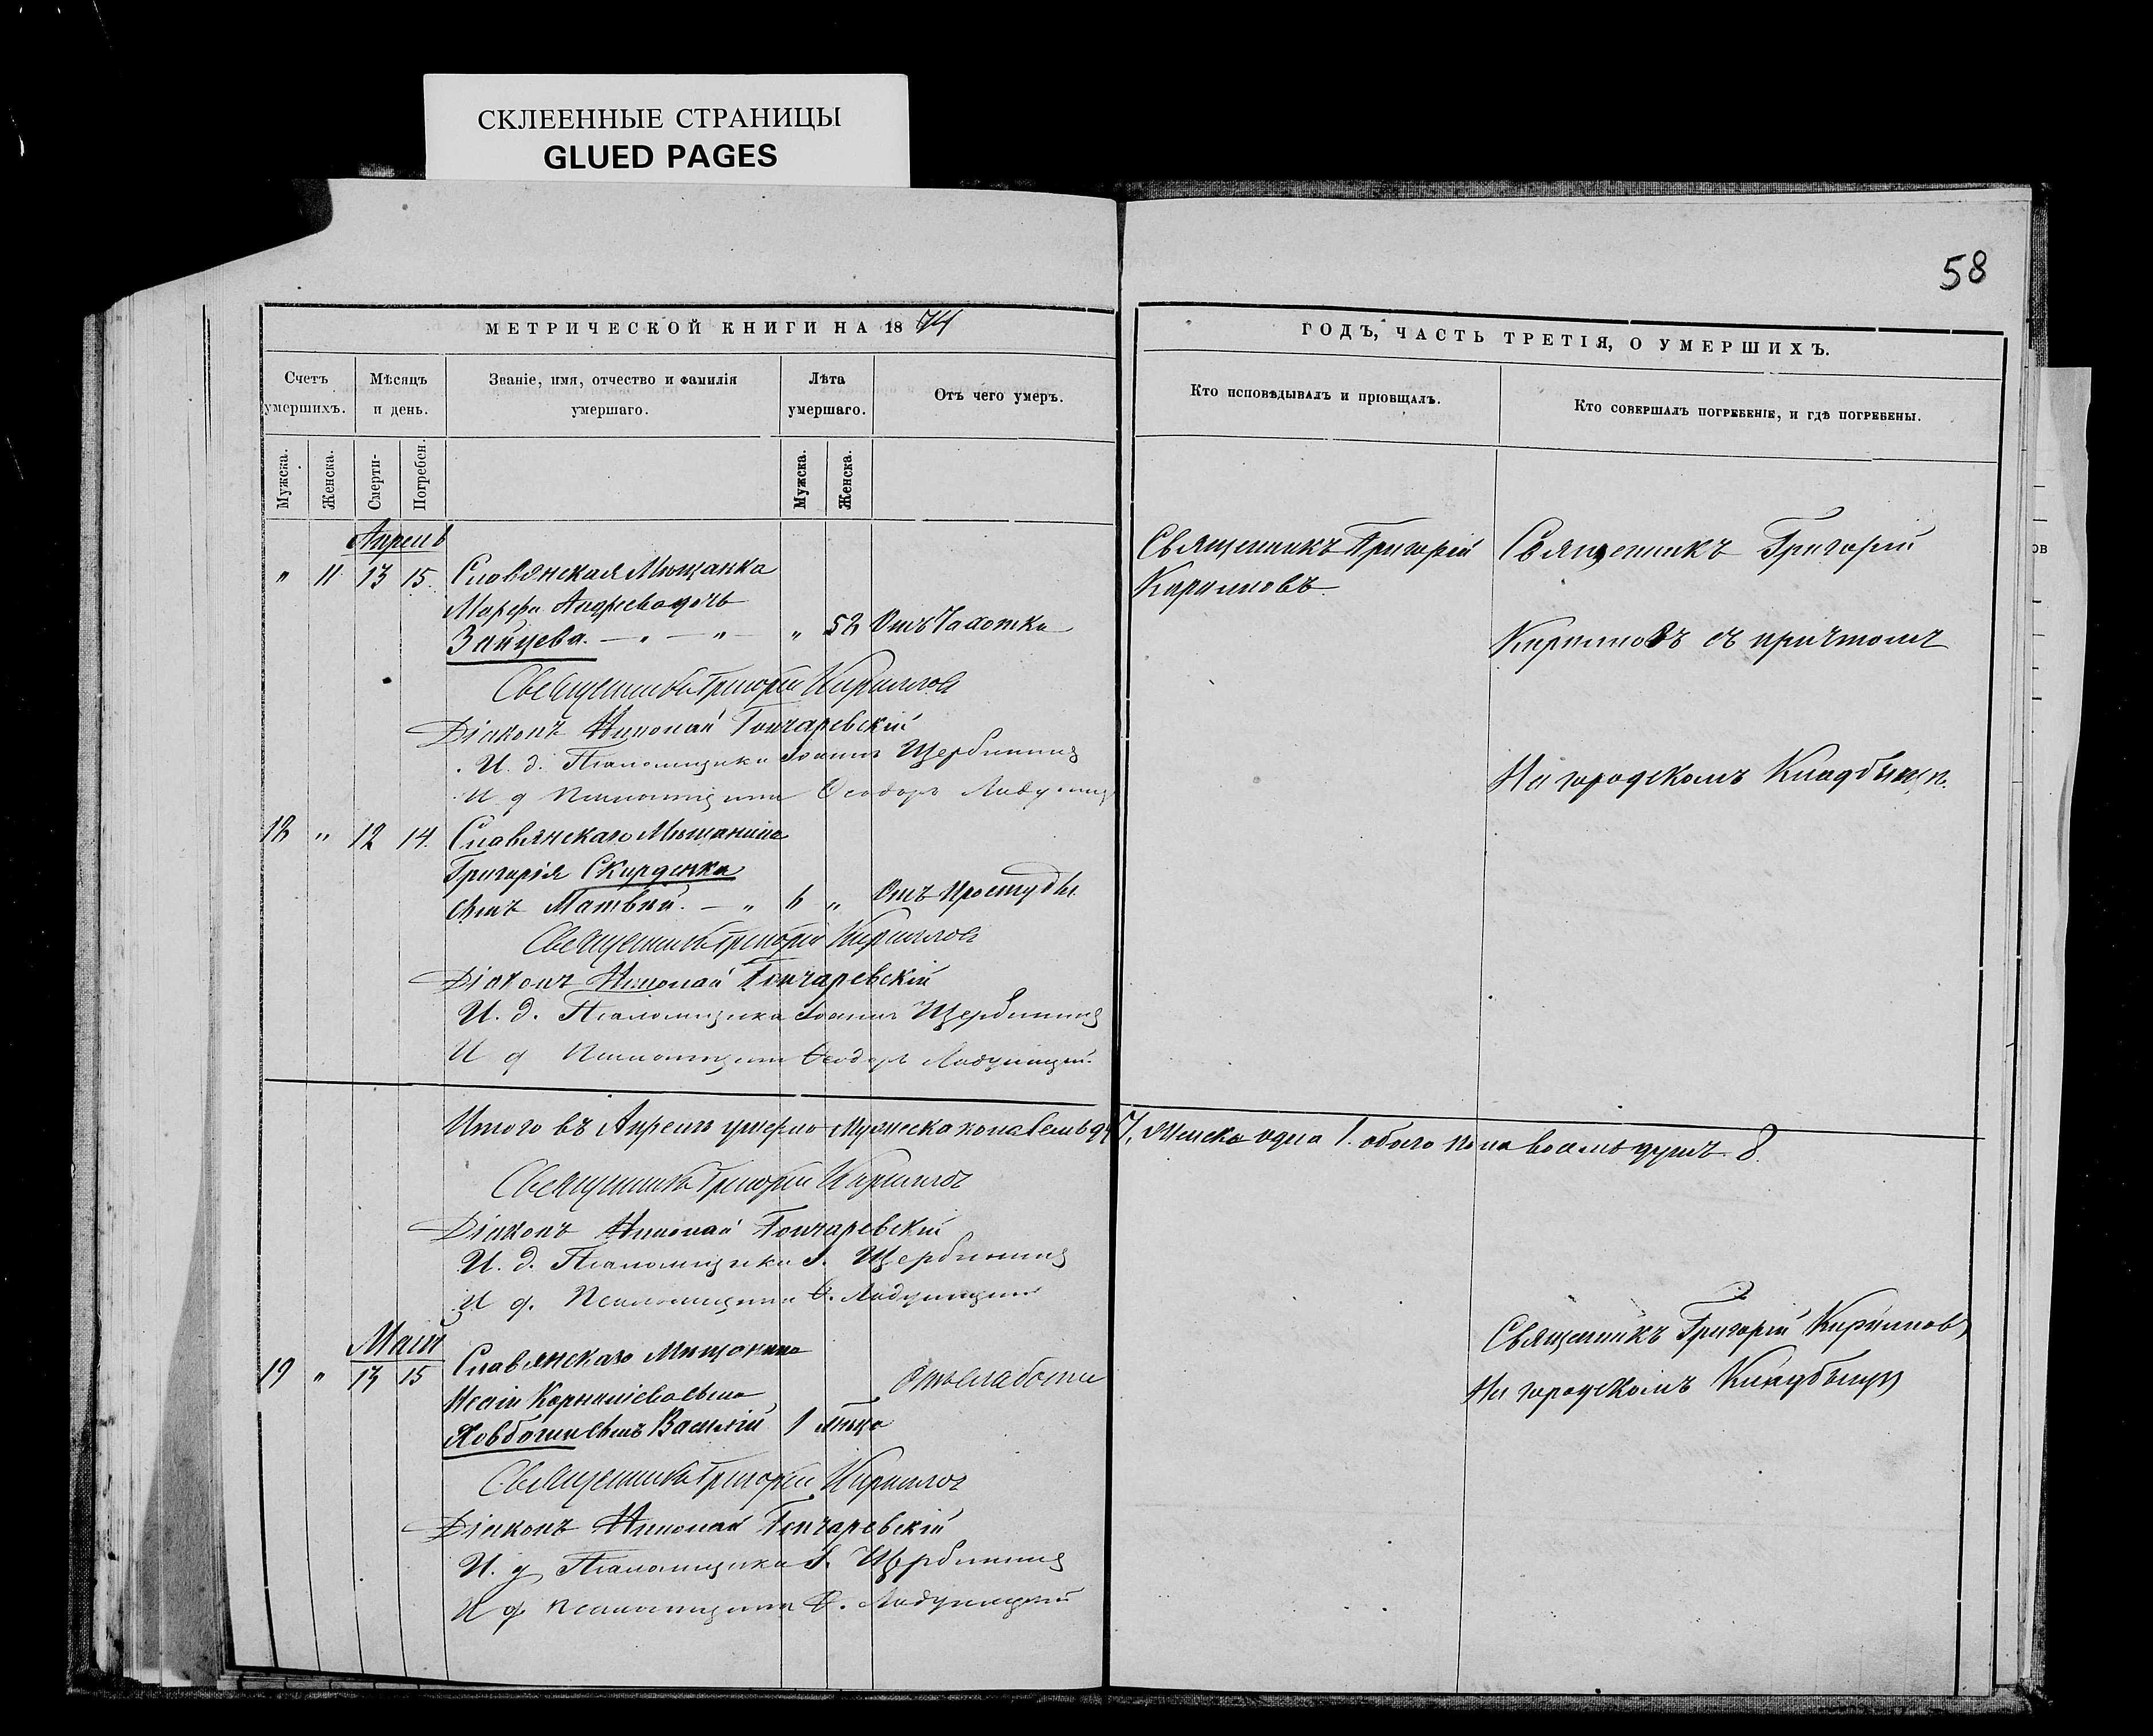 СКЛЕЕННЫЕ СТРАНИЦЫ
GLUED PAGES
58
МЕТРИЧЕСКОЙ КНИГИ НА 1874
ГОДЪ, ЧАСТЬ ТРЕТІЯ, О УМЕРШИХЪ.
Счетъ умершихъ.
Мѣсяцъ и день.
Званіе, имя, отчество и фамилія умершаго.
Лѣта умершаго.
Отъ чего умеръ.
Кто исповѣдывалъ и пріобщалъ.
Кто совершалъ погребеніе, и гдѣ погребены.
Мужска.
Женска.
Смерти-
Погребен.
Мужска.
Женска.
Апрель
" 11 13 15. Славянская Мѣщанка
Марфа Андреева дочь
Зайцева. — " — " — " 52 Отъ Чахотки
Священникъ Григорій Кирилловъ
Діаконъ Николай Гончаревскій
И. д. Псаломщика Іоаннъ Щербинин
И д Псаломщика Ѳеодоръ
Священникъ Григорій
Кириловъ
Священникъ Григорій
Кириловъ съ причтомъ
На городскомъ Кладбищѣ.
18 " 12 14. Славянскаго Мѣщанина
Григорія Скирденка
сынъ Матвѣй. — " 6 " Отъ Простуды
Священникъ Григорій Кирилловъ
Діаконъ Николай Гончаревскій
И. д. Псаломщика Іоаннъ Щербинин
И д Псаломщика Ѳеодоръ
Итого въ Апрелѣ умерло Мужеска пола семь 7, Женска одна 1. обоего пола восемь душъ 8.
Священникъ Григорій Кирилловъ
Діаконъ Николай Гончаревскій
И. д. Псаломщика І. Щербинин
И д. Псаломщика Ѳ.
Май
19 " 13 15 Славянскаго Мѣщанина
сынъ Василій 1 мѣсяца
Отъ слабости
Священникъ Григорій Кирилловъ
Діаконъ Николай Гончаревскій
И. д. Псаломщика І. Щербинин
И д. Псаломщика Ѳ.
Священникъ Григорій Кириловъ
На городскомъ Кладбищѣ